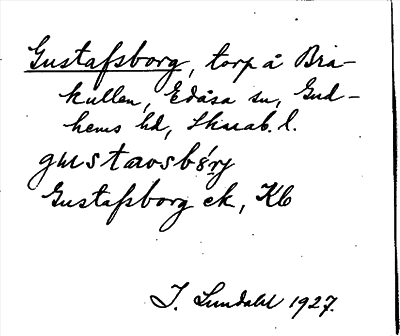 Gustafsborg, torp å Brå-
kullen, Edåsa sn, Gud-
hems hd, Skarab. l.
gustavsbory
Gustafsborg ek, Kb
I. Lundahl 1927.